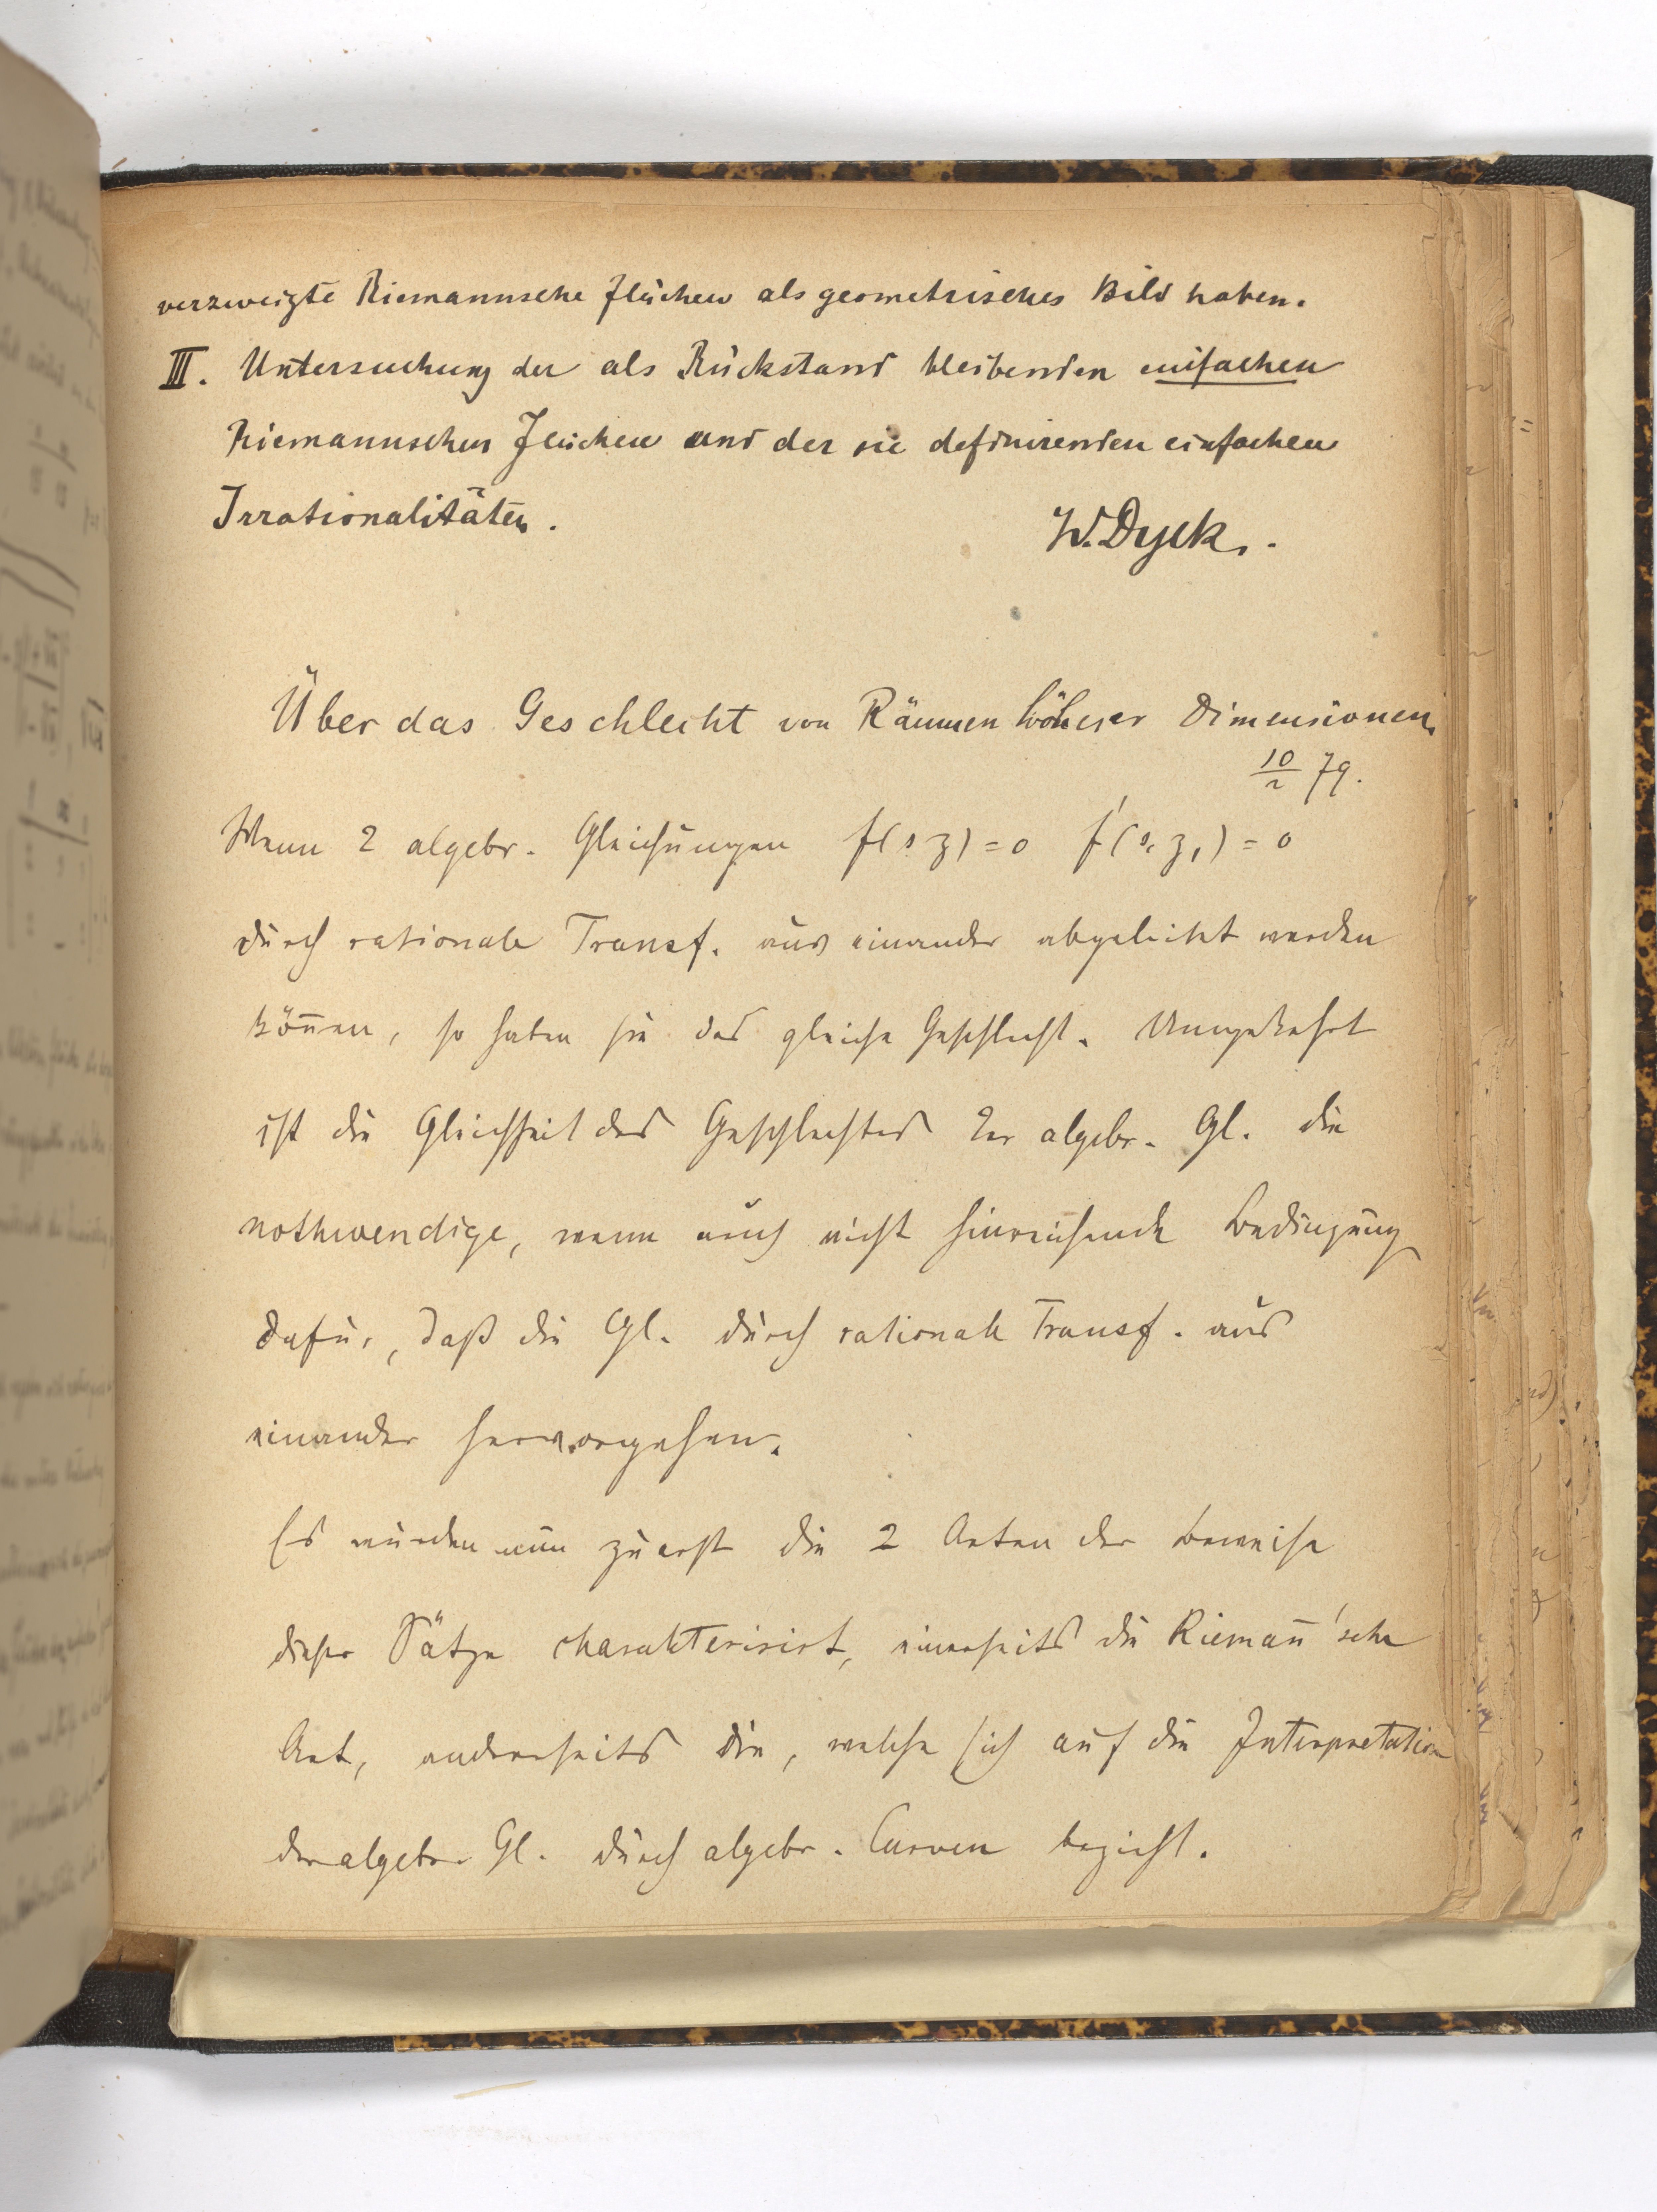 verzweigte Riemannsche Flächen als geometrisches Bild haben.
III. Untersuchung der als Rückstand bleibenden einfachen
Riemannschen Flächen und der sie definirenden einfachen
Irrationalitäten.
W. Dyck.
Über das Geschlecht von Räumen höherer Dimensionen
10/2 79.
Wenn 2 algebr. Gleichungen f(s z) = 0 f'(s, z,) = 0
durch rationale Transf. aus einander abgeleitet werden
kön̄en, so haben sie das gleiche Geschlecht. Umgekehrt
ist die Gleichheit des Geschlechtes 2er algebr. Gl. die
nothwendige, wenn auch nicht hinreichende Bedingung
dafür, daß die Gl. durch rationale Transf. aus
einander hervorgehen.
Es wurden nun zuerst die 2 Arten der Beweise
dieser Sätze charakterisirt, einerseits die Rieman̄'sche
Art, anderseits die, welche sich auf die Interpretation
der algebr. Gl. durch algebr. Curven bezieht.